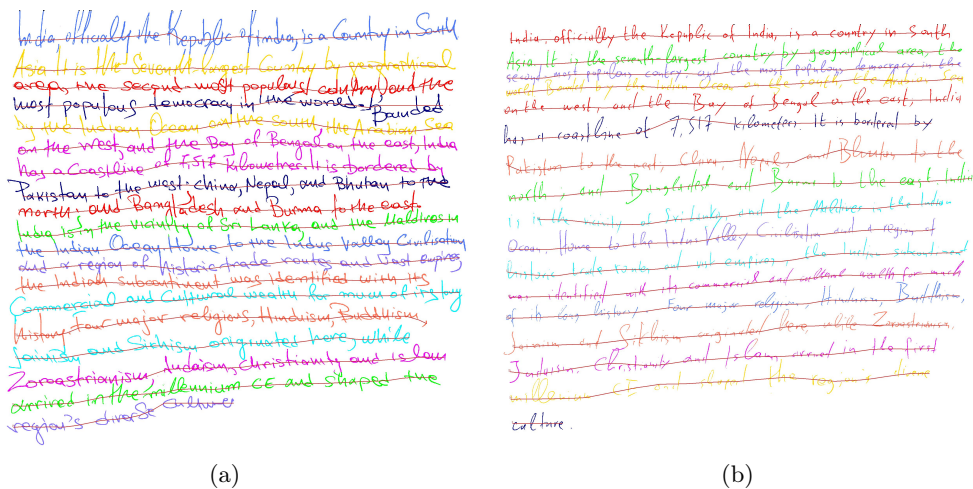 India, officially the Republic of India, is a Country in South
Asia It is the Seventh largest Country by geographical
area, the second most populous country, and the
most populous democracy in the world. Bounded
by the Indian Ocean on the South, the Arabian Sea
on the west, and the Bay of Bengal on the east, India
has a Coastline of 7,517 kilometres It is bordered by
Pakistan to the west. China, Nepal, and Bhutan to the
north and Bangladesh and Burma to the east.
India is in the vicinity of Sri Lanka, and the Maldives in
the Indian Ocean Home to the Indus Valley Civilisation
and a region of historic trade routes and Vast empires,
the Indian subcontinent was identified with its
Commercial and Cultural wealth for much of its long
History Four major religions, Hinduism, Buddhism,
Jainism and Sikhism originated here, while
Zoroastrianism, Judaism, Christianity and islam
arrived in the millennium CE and shapes the
region's diverse Culture
(a)
India, officially the Republic of India, is a country in South
Asia It is the seventh largest country by geographical area, the
second most populous country, and the most populous democracy in the
by the Indian Ocean on the
on the west, and the Bay of Bengal on the east, India
has a coastline of 7,517 kilometers. It is bordered by
Pakistan to the west, China, Nepal and Bhutan to the
north and Bangladesh and Burma to the east India
is in the vicinity of Sri Lanka, and the Maldives in the Indian
Ocean Home to the Indus Valley Civilisation and a region of
historic trade routes and vast empires, the Indian subcontinent
was identified with its commercial and cultural wealth for much
of its long history Four major religions, Hinduism, Buddhism,
Jainism and Sikhism originated here, while Zoroastrianism,
Judaism, Christianity and Islam arrived in the first
millennium CE and shaped the region's diverse
culture.
(b)